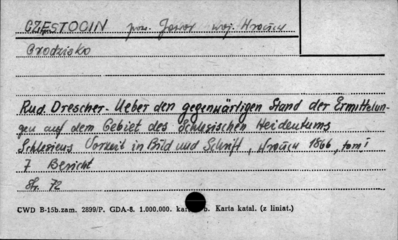 CZĘSTOCIN pow. Jawor woj. Wrocław
Grodzisko
Rud. Drescher- Ueber den gegenwärtigen Stand der Ermittelun-
gen auf dem Gebiet des Schlesischen Heidentums
Schlesiens Vorzeit in Bild und Schrift, Wrocław 1866, tom I
7 Bericht
Str. 72
CWD B-15b.zam. 2899/P. GDA-8. 1.000.000. b. Karta katal. (z liniat.)